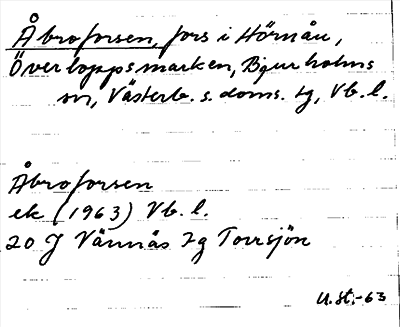 Åbroforsen, fors i Hörnån,
Överloppsmarken, Bjurholms
sn, Västerb. s. doms. tg, Vb. l.
Åbroforsen
ek (1963) Vb. l.
20 J Vännäs 7g Torrsjön
U.St.-63